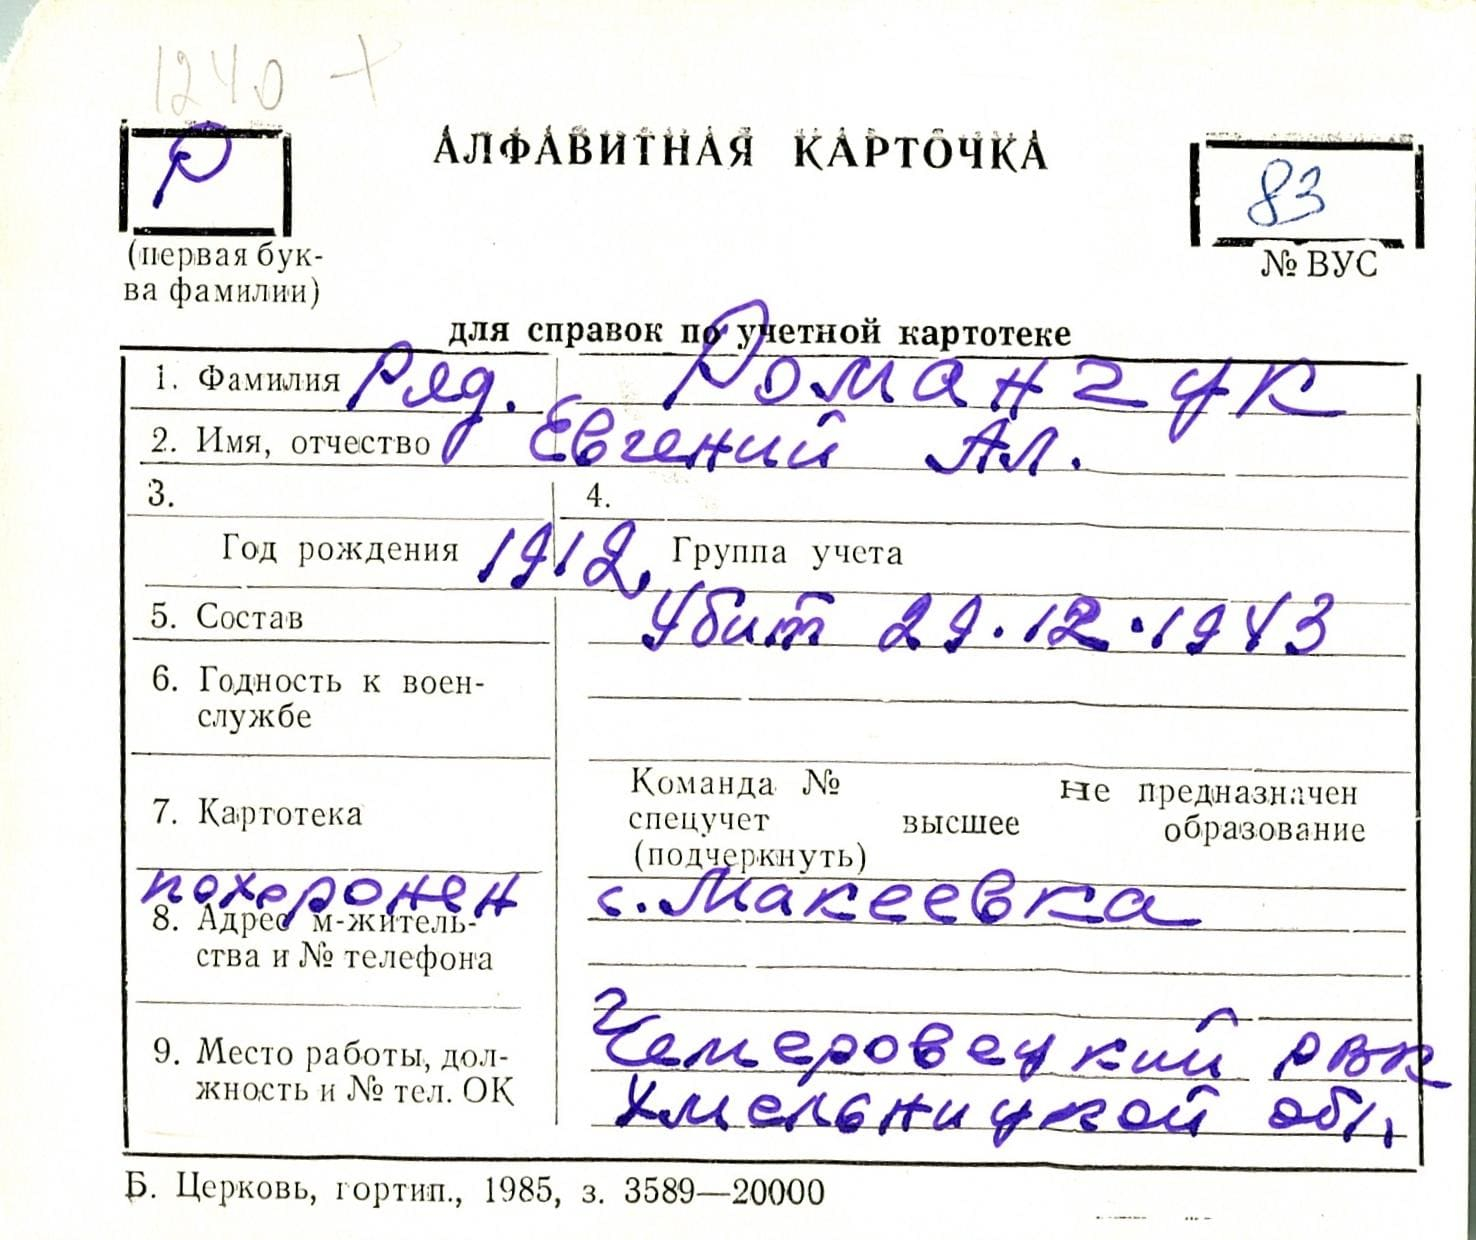 1240 +
Р
АЛФАВИТНАЯ КАРТОЧКА
83
(первая бук-
ва фамилии)
№ ВУС
для справок по учетной картотеке
1. Фамилия Ряд. Романчук
2. Имя, отчество Евгений Ал.
3. 4.
Год рождения 1912, Группа учета
5. Состав Убит 29.12.1943
6. Годность к воен-
службе
Команда № не предназначен
7. Картотека спецучет высшее образование
(подчеркнуть)
похоронен с. Макеевка
8. Адрес м-житель-
ства и № телефона
Чемеровецкий РВК
9. Место работы, дол-
жность и № тел. ОК Хмельницкой обл,
Б. Церковь, гортип., 1985, з. 3589—20000